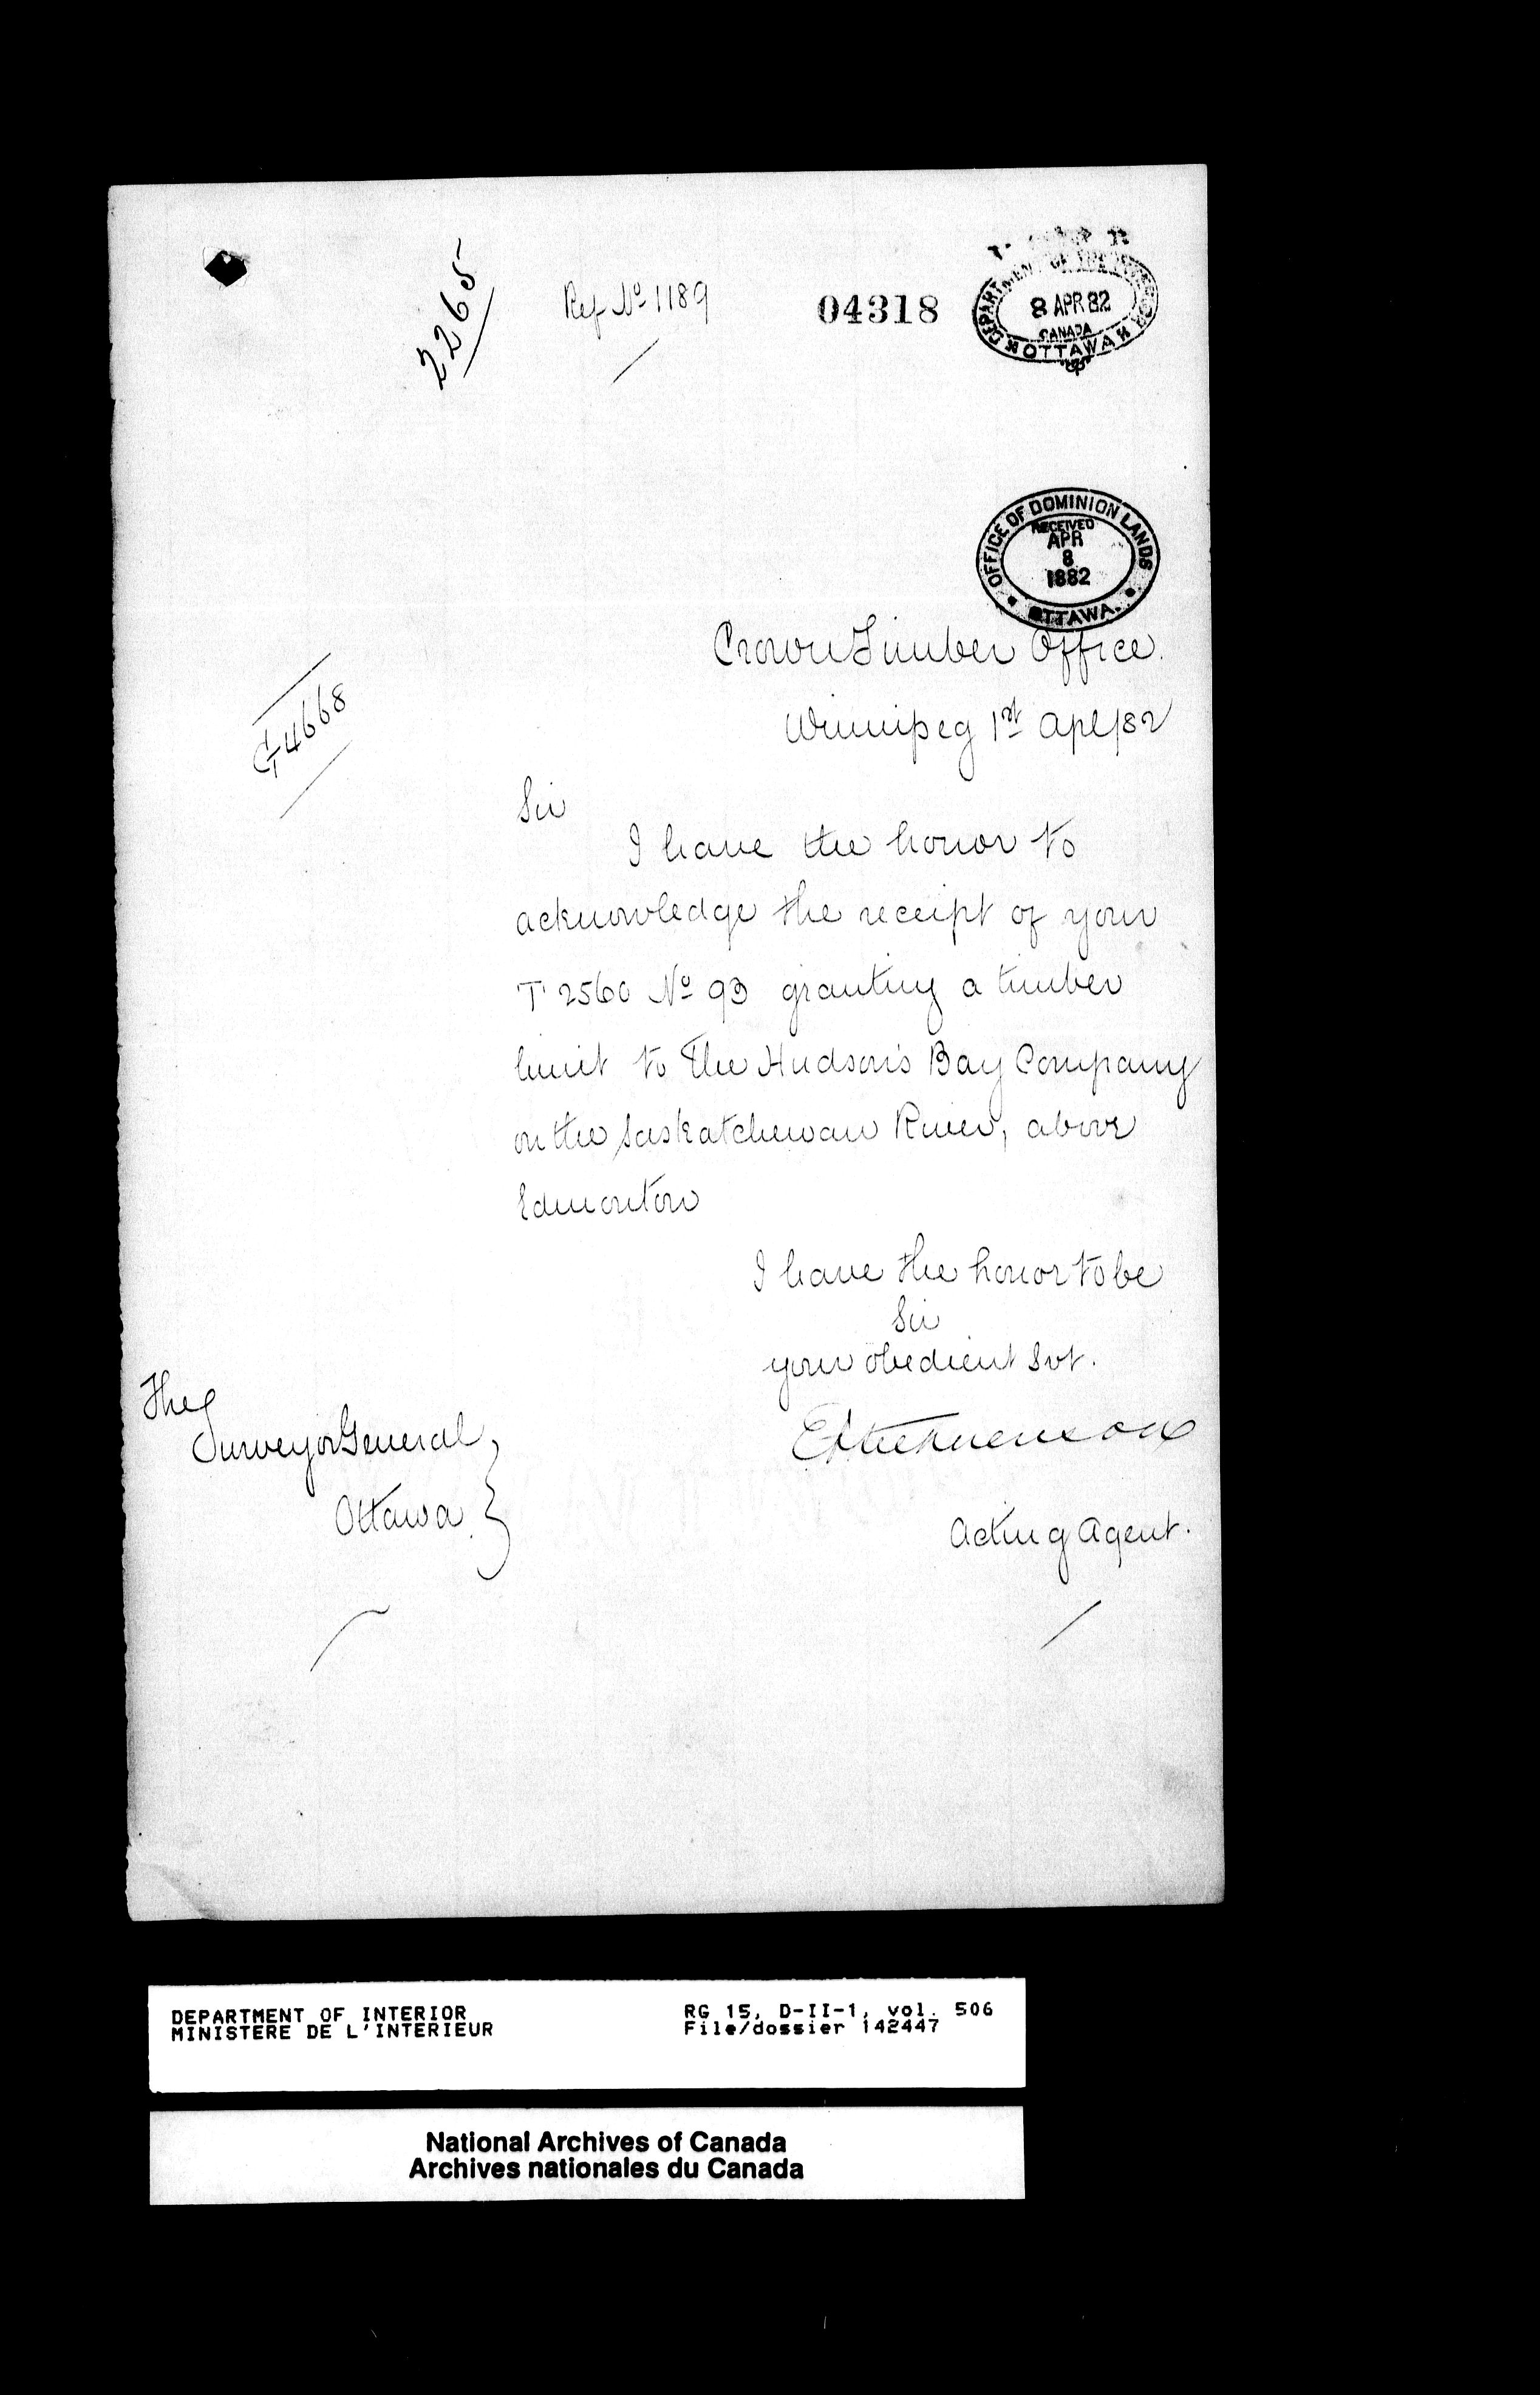 2265
Ref No 1189
04318
DEPARTMENT OF THE INTERIOR
8 APR 82
CANADA
OTTAWA
OFFICE OF DOMINION LANDS
RECEIVED
APR
8
1882
OTTAWA.
Crown Timber Office.
Winnipeg 1st Apl/82
4668
Sir
I have the honor to
acknowledge the receipt of your
T 2560 No 93 granting a timber
limit to The Hudson's Bay Company
on the Saskatchewan River, above
Edmonton
I have the honor to be
Sir
your obedient Svt.
E Stephenson
Acting Agent.
The
Surveyor General,
Ottawa
DEPARTMENT OF INTERIOR
MINISTERE DE L'INTERIEUR
RG 15, D-II-1, vol. 506
File/dossier 142447
National Archives of Canada
Archives nationales du Canada